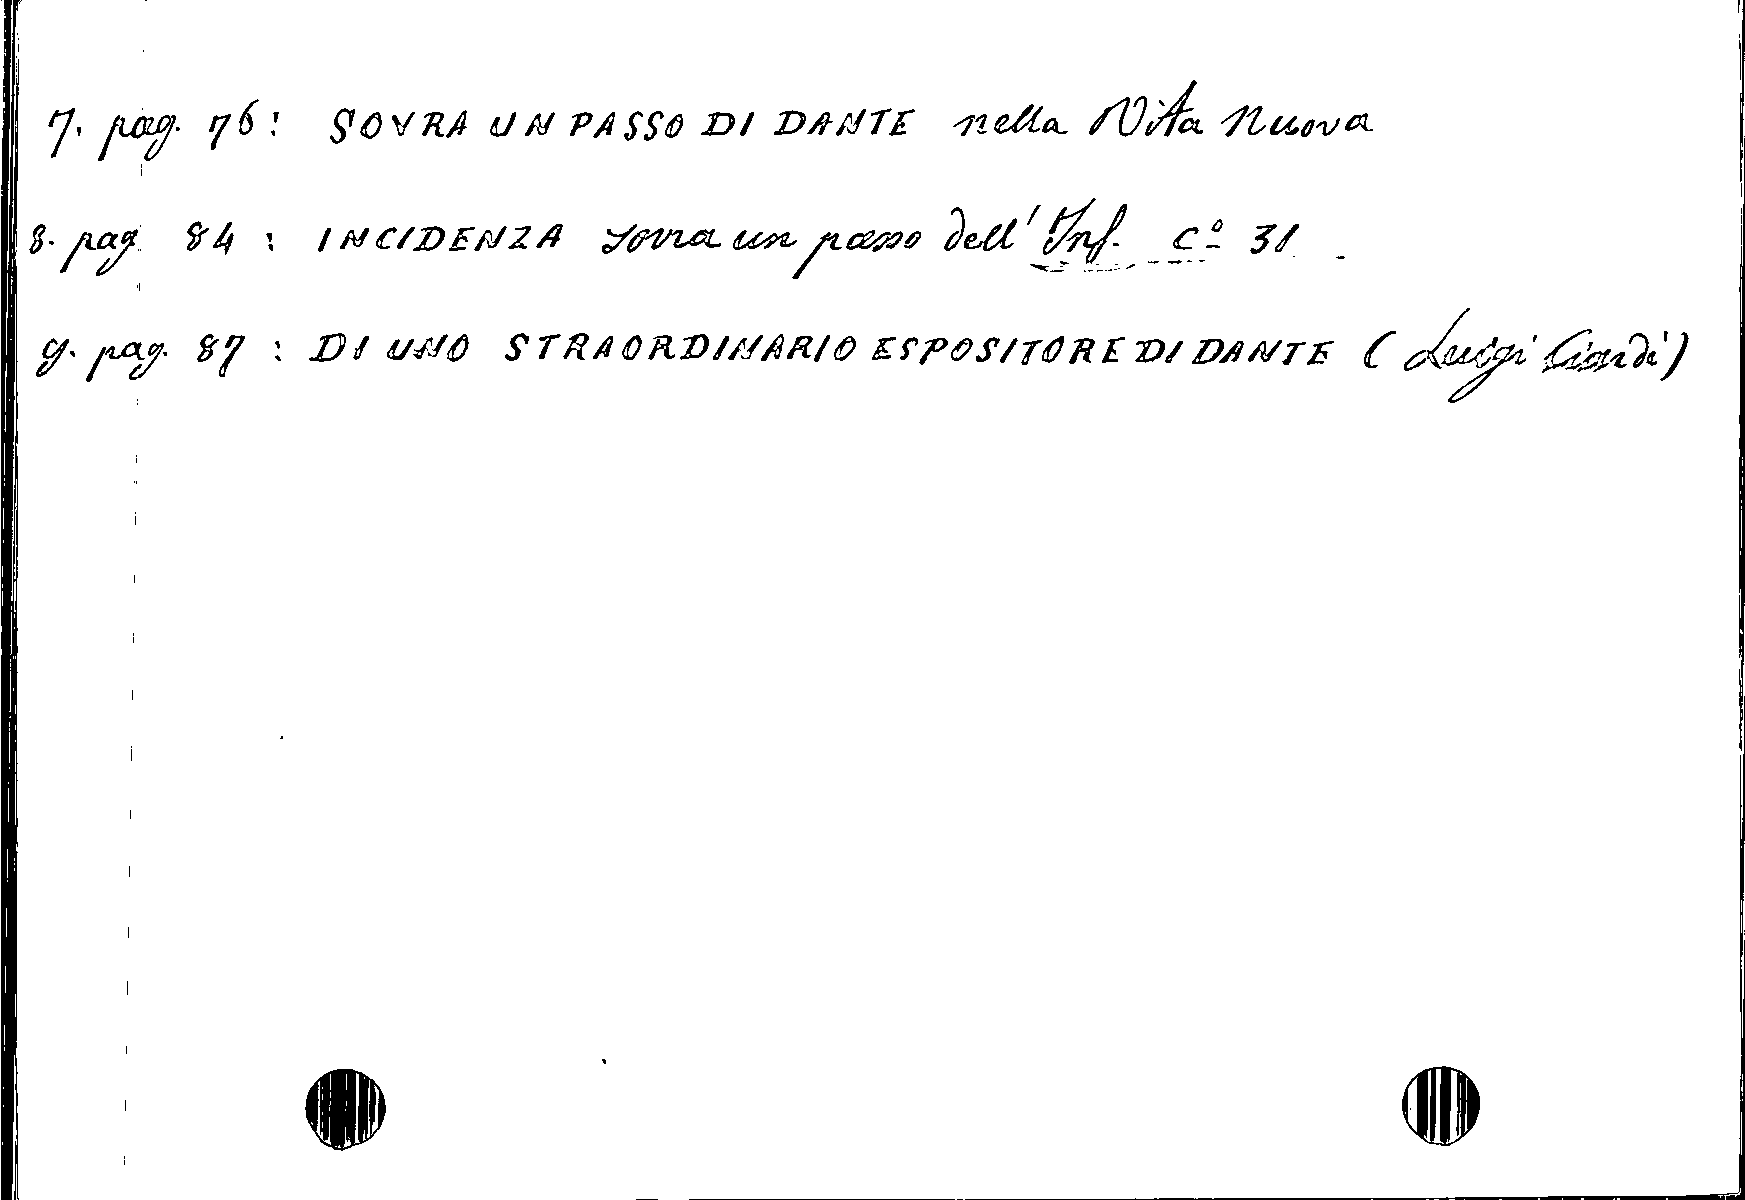 7. pag. 76: SOVRA UN PASSO DI DANTE nella Vita Nuova
8. pag. 84: INCIDENZA sovra un passo dell'Inf. Cº 31
9. pag. 87: DI UNO STRAORDINARIO ESPOSITORE DI DANTE (Luigi Ciardi)